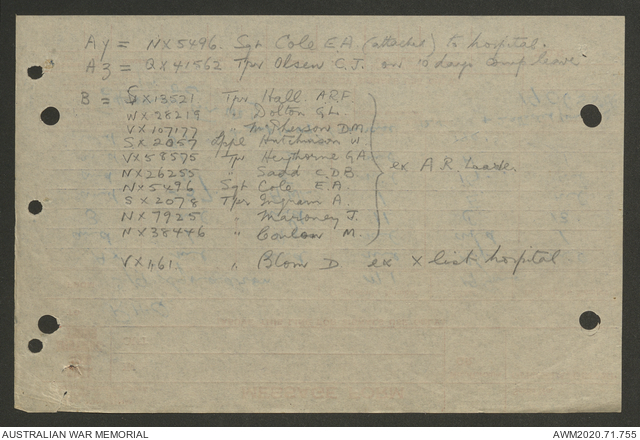 A4 = NX5496. Sgt Cole E.A. (attached) to hospital.
A3 = QX41562 Tpr Olsen C.J. on 10 days Comp leave
B = SX13521 Tpr Hall A.R.F.
WX28219 " Dolton G.L.
VX107177 " McPherson D.M.
SX2057 Hutchinson W.
VX58575 Tpr G.A.
NX26255 " C.D.B.
NX5496 Sgt Cole E.A.
SX2078 Tpr Ingram A.
NX7925 " Maroney J.
NX38446 " Conlon M.
ex A.R. Leave.
VX461 " Blom D. ex X list hospital
AUSTRALIAN WAR MEMORIAL
AWM2020.71.755